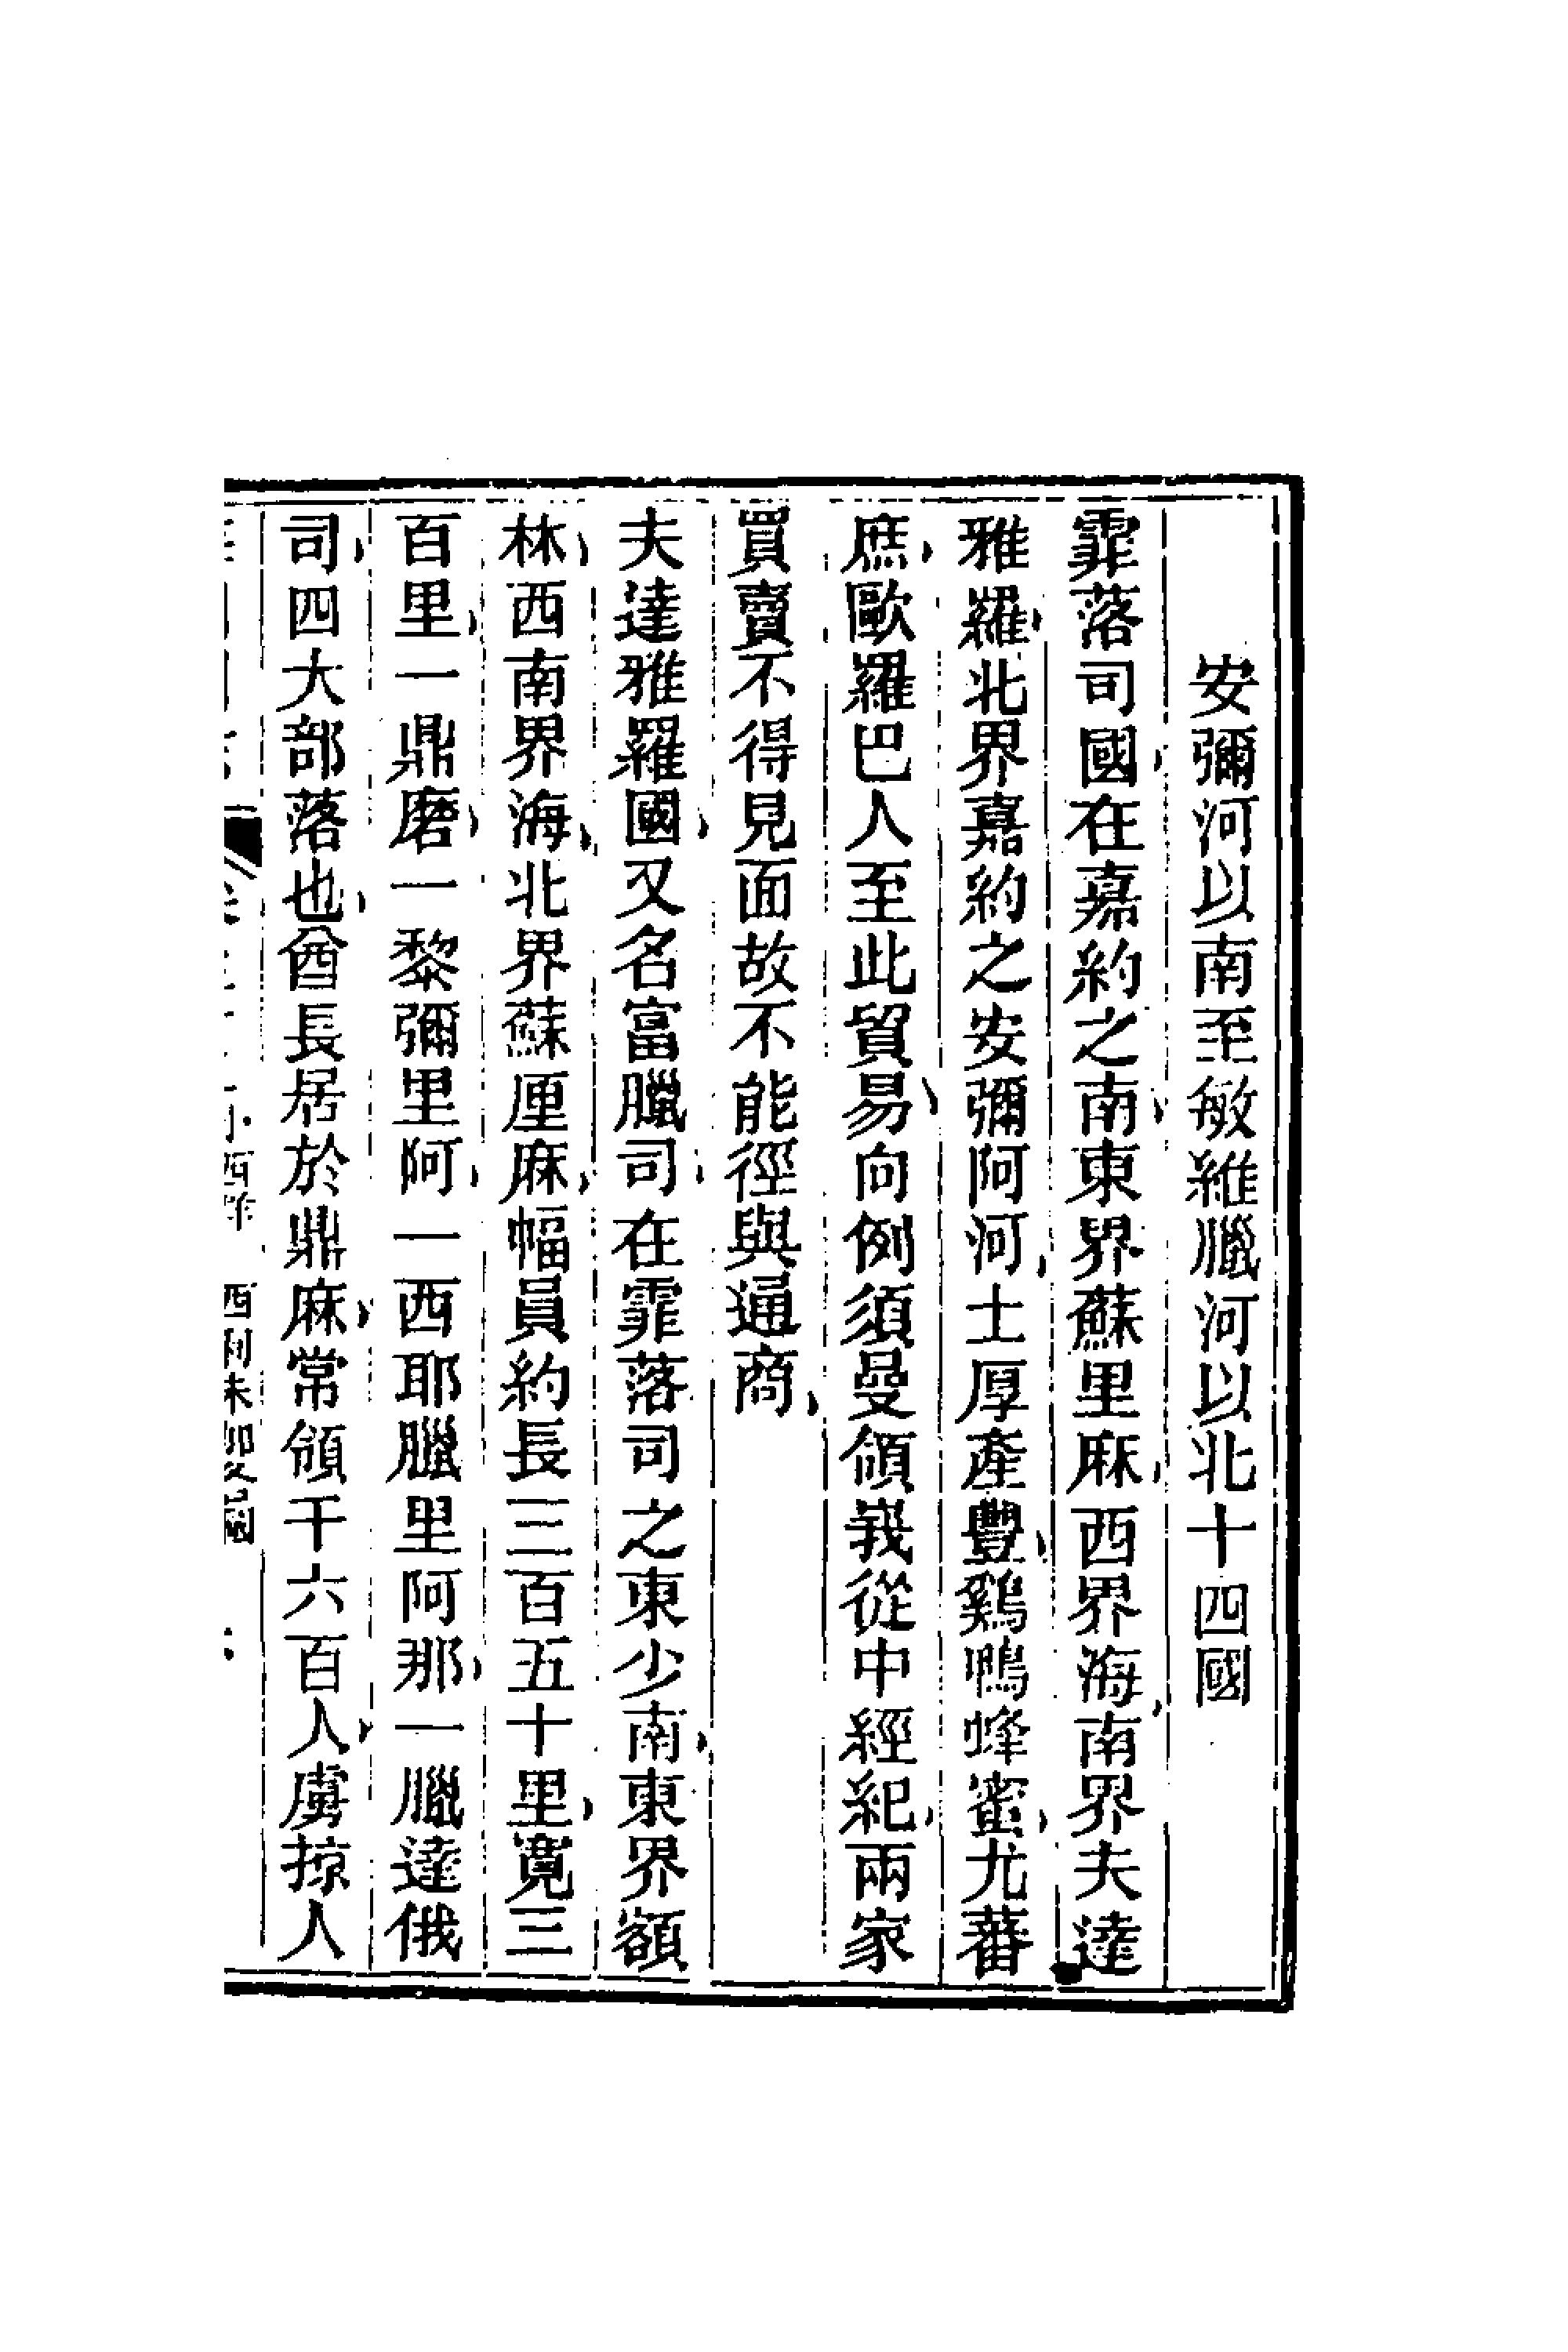 安彌河以南至敏維臘河以北十四國
霏落司國在嘉約之南東界蘇里麻西界海南界夫達
雅羅北界嘉約之安彌阿河土厚產豐鷄鴨蜂蜜尤蕃
庶歐羅巴人至此貿易向例須曼領峩從中經紀兩家
買賣不得見面故不能徑與通商
夫達雅羅國又名富臘司在霏落司之東少南東界額
林西南界海北界蘇厘麻幅員約長三百五十里寬三
百里一鼎磨一黎彌里阿一西耶臘里阿那一臘達俄
司四大部落也酋長居於鼎麻常領千六百人虜掠人